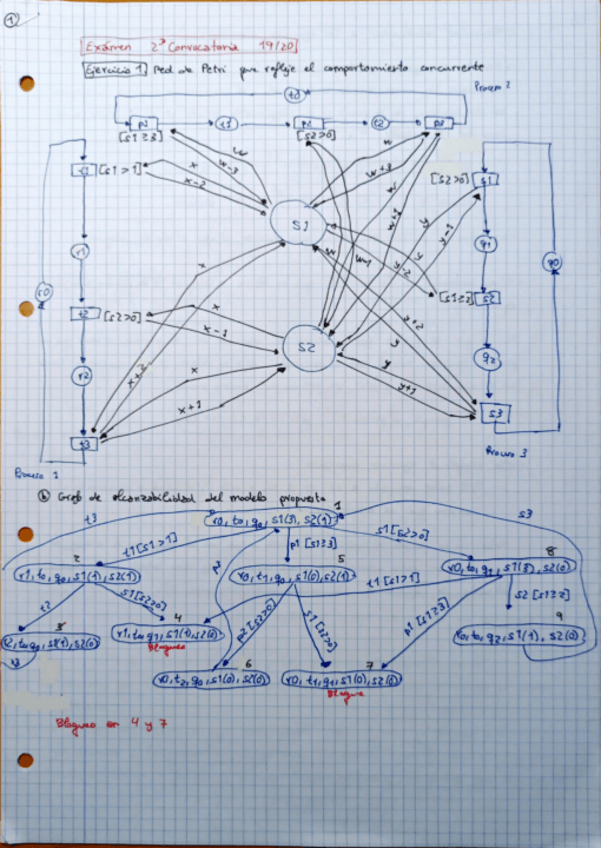 1
Exámen 2ª Convocatoria 19/20
Ejercicio 1 Red de Petri que refleje el comportamiento concurrente
Proceso 2
t0
p1 t1 p2 t2 p3
[s1≥3] [s2>0]
w w-3 w w+3
[s1>1] x x-2
[s2>0] s1
S1
r1 q1 q0
w w-1 y y-2 y y-1
r0 t2 [s2>0] x x-1
[s1≥2] s2
S2
y+2 y
r2 q2
x x+1 y y+1
t3 s3
Proceso 1
Proceso 3
b) Grafo de alcanzabilidad del modelo propuesto
1
r0, t0, q0, s1(3), s2(1)
t3 s3
t1[s1>1] p1 [s1≥3] s1[s2>0]
2 5 8
r1, t0, q0, s1(1), s2(1)
r0, t1, q0, s1(0), s2(1)
r0, t0, q1, s1(3), s2(0)
t2 s1[s2>0] p2[s2>0] s1[s2>0] t1[s1>1] p1[s1≥3] s2[s1≥2]
3 4 9
r1, t0, q1, s1(1), s2(0)
r0, t0, q2, s1(1), s2(0)
Bloqueo
6 7
r0, t2, q0, s1(0), s2(0)
r0, t1, q1, s1(0), s2(0)
Bloqueo
Bloqueo en 4 y 7